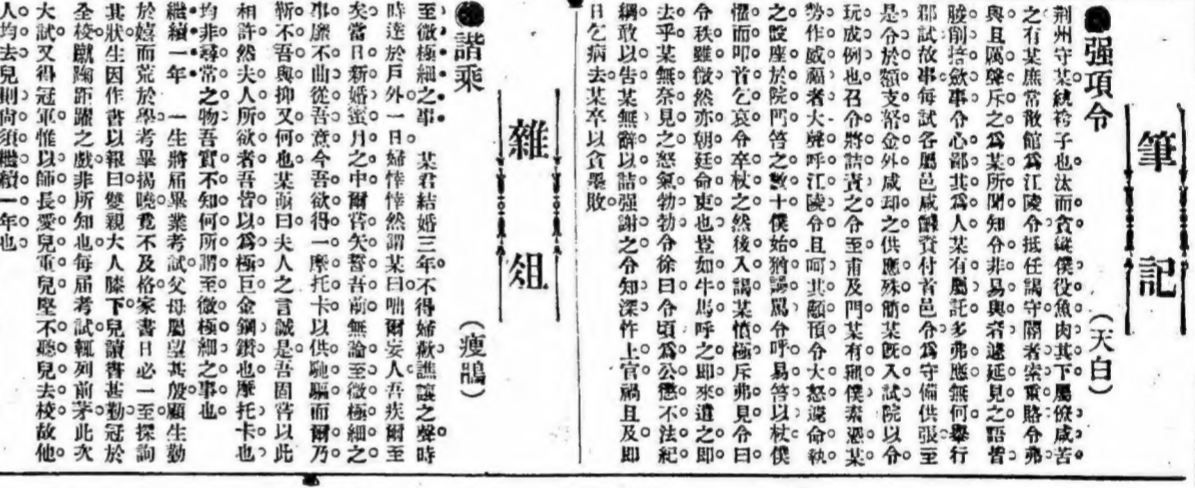 筆記
●强項令
（天白）
荆州守某紈袴子也汰而貪縱僕役魚肉其下屬僚咸苦
之有某庶常散館爲江陵令抵任謁守閽者索重賂令弗
與且厲聲斥之爲某所聞知令非易與者遽延見之語皆
朘削掊斂事令心鄙其爲人某有屬託多弗應無何舉行
郡試故事每試各屬邑咸醵資付首邑令爲守備供張至
是令於額支帑金外咸却之供應殊簡某旣入試院以令
玩成例也召令將詰責之令至甫及門某有豣僕素慫某
勞作威福者大聲呼江陵令且呵其顢頇令大怒遽命執
之啟座於院門笞之數十僕始猶謾罵令呼易笞以杖僕
懼而叩首乞哀令卒杖之然後入謁某憤極斥弗見令曰
令秩雖微然亦朝廷命吏也豈如牛馬呼之卽來遣之卽
去乎某無奈見之怒氣勃勃令徐曰令頃爲公懲不法紀
綱敢以告某無辭以詰强謝之令知深忤上官禍且及卽
日乞病去某卒以貪墨敗
雜俎
●諧乘
（瘦鵑）
至微極細之事　某君結婚三年不得婦歡譙讓之聲時
時達於戶外一日婦悻悻然謂某曰咄爾妄人吾疾爾至
矣當日新婚蜜月之中爾嘗矢誓吾前無論至微極細之
事靡不曲從吾意今吾欲得一摩托卡以供馳驅而爾乃
靳不吾與抑又何也某崩曰夫人之言誠是吾固嘗以此
相許然夫人所欲者吾皆以爲極巨金鋼鑽也摩托卡也
均非尋常之物吾實不知何所謂至微極細之事也
繼續一年　一生將屆畢業考試父母屬望甚殷顧生勤
於嬉而荒於學考畢揭曉竟不及格家書日必一至探詢
其狀生因作書以報曰雙親大人膝下兒讀書甚勤冠於
全校蹴踘距躍之戲非所知也每屆考試輒列前茅此次
大試又得冠軍惟以師長愛兒重兒堅不聽兒去校故他
人均去兒則尙須繼續一年也